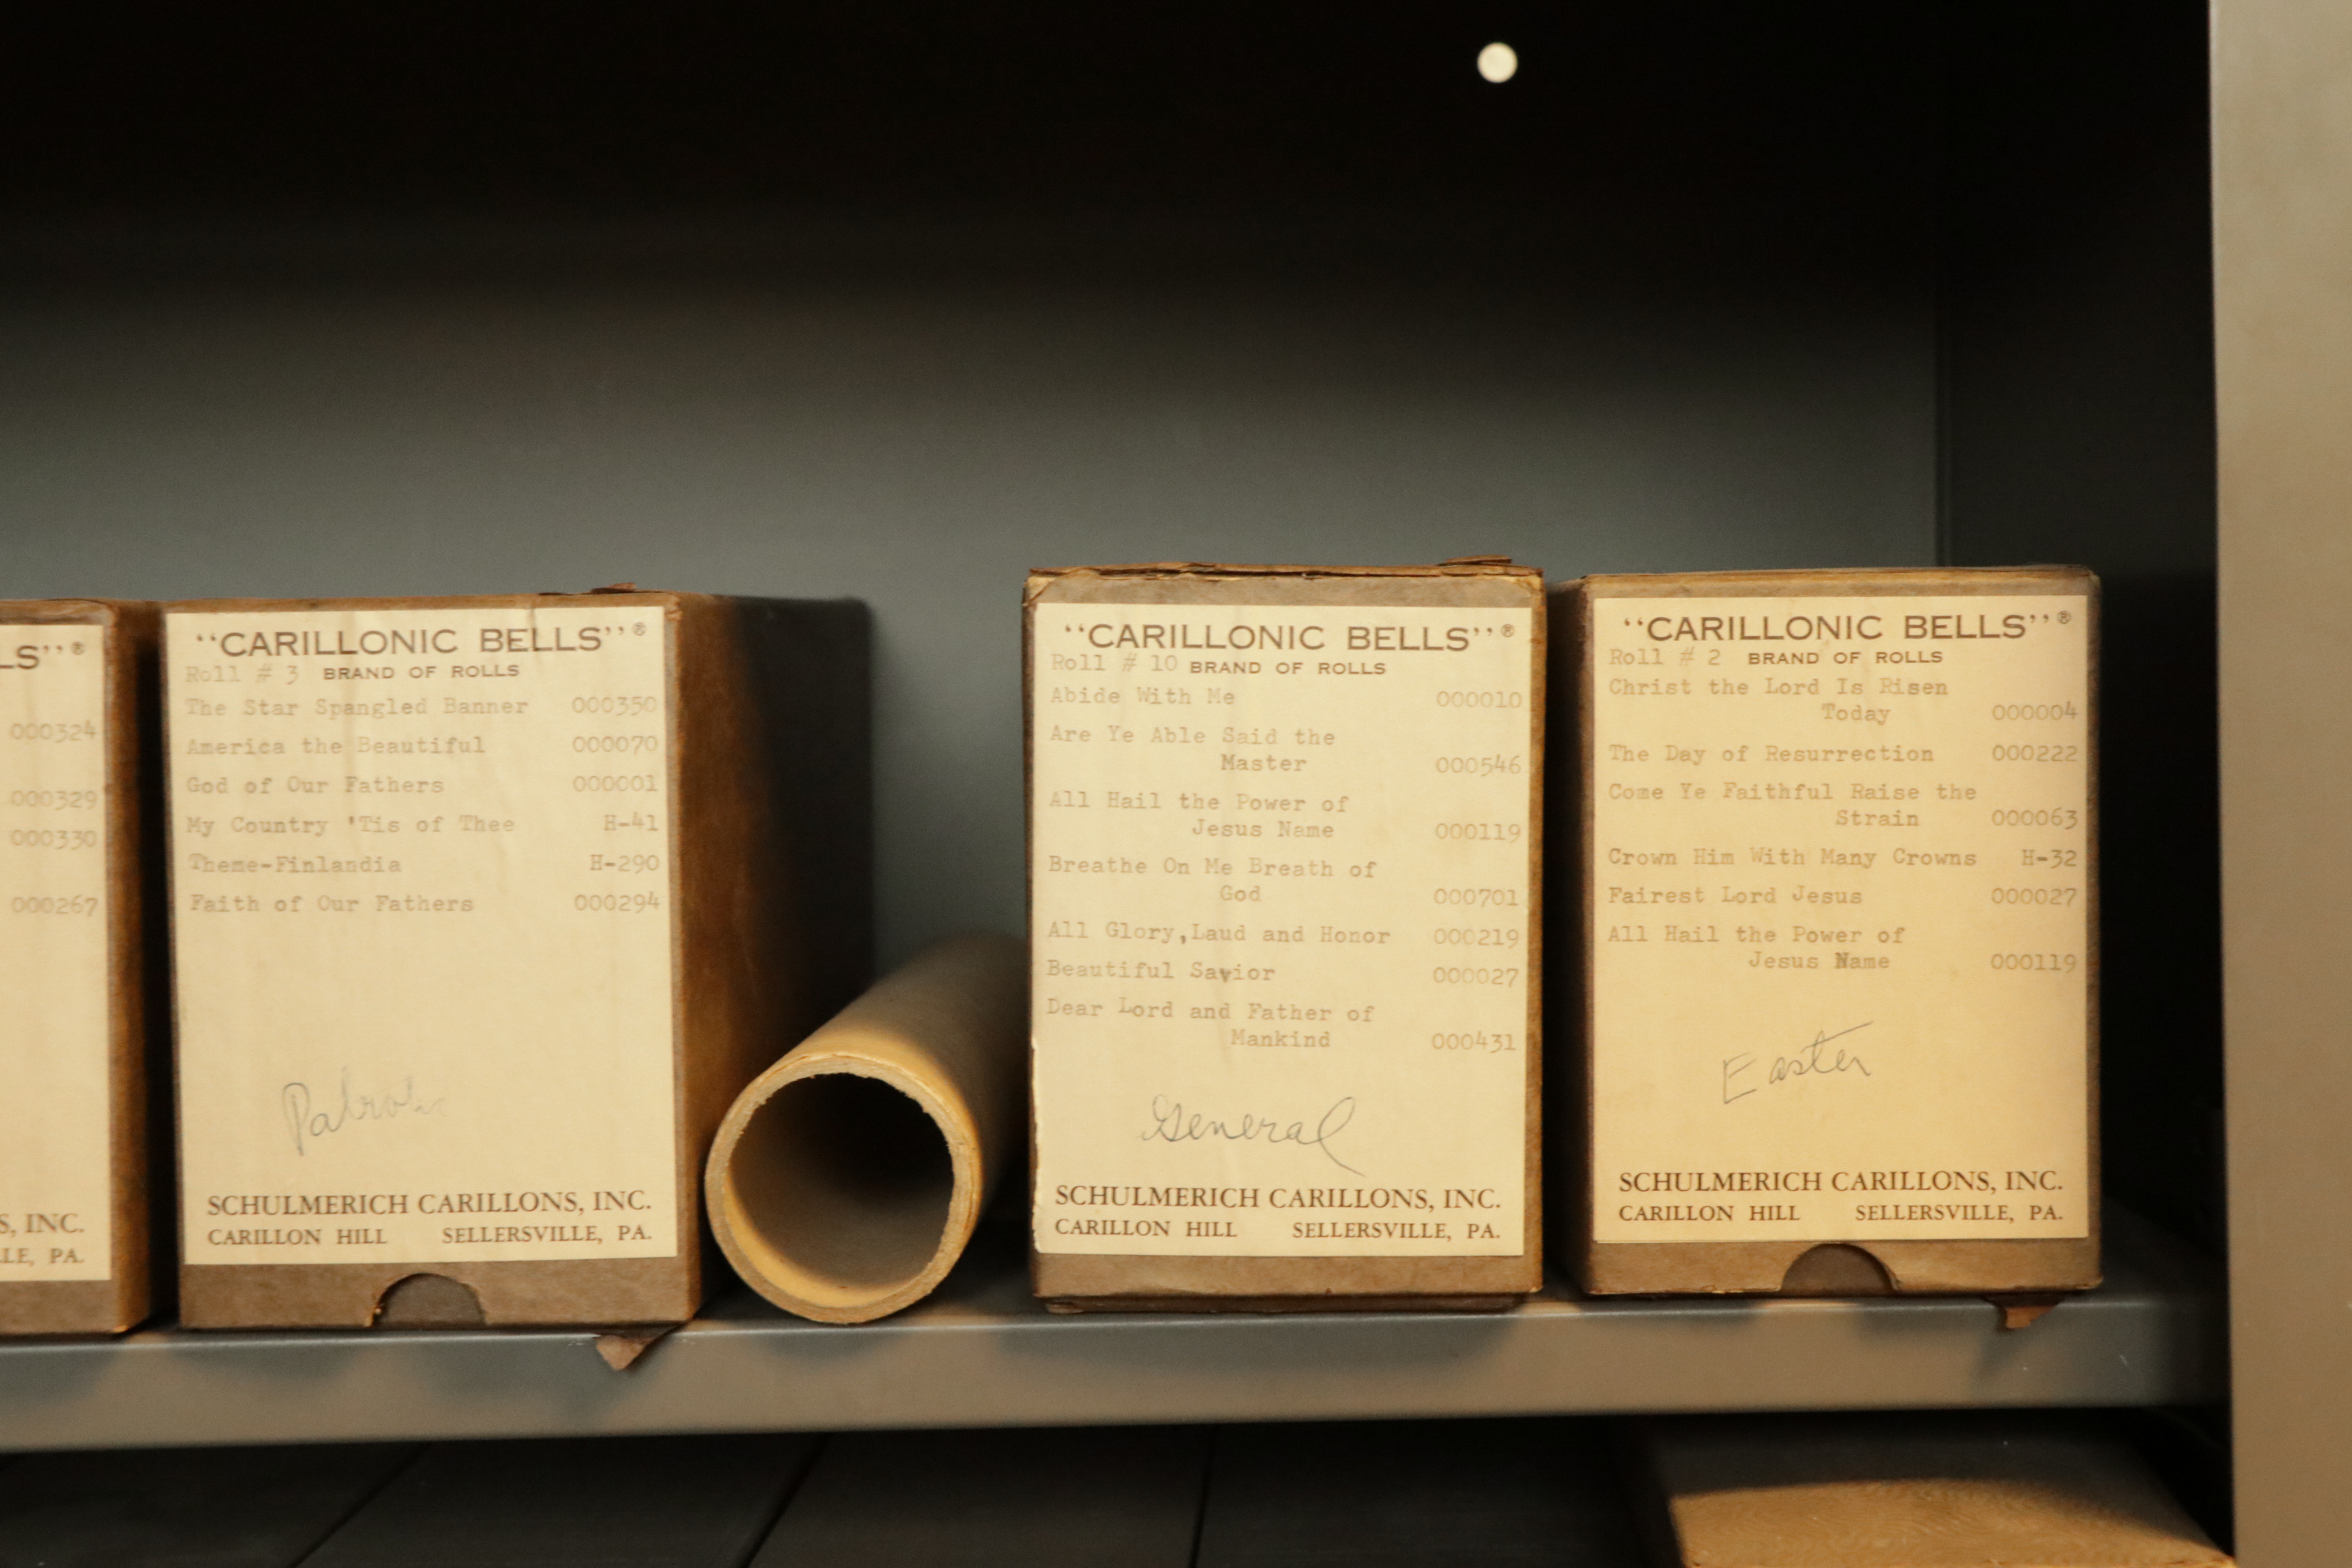 LS”®
000324
000329
000330
000267
S, INC.
LE, PA.
“CARILLONIC BELLS”®
Roll # 3 BRAND OF ROLLS
The Star Spangled Banner 000350
America the Beautiful 000070
God of Our Fathers 000001
My Country 'Tis of Thee H-41
Theme-Finlandia H-290
Faith of Our Fathers 000294
SCHULMERICH CARILLONS, INC.
CARILLON HILL SELLERSVILLE, PA.
“CARILLONIC BELLS”®
Roll # 10 BRAND OF ROLLS
Abide With Me 000010
Are Ye Able Said the
Master 000546
All Hail the Power of
Jesus Name 000119
Breathe On Me Breath of
God 000701
All Glory,Laud and Honor 000219
Beautiful Savior 000027
Dear Lord and Father of
Mankind 000431
General
SCHULMERICH CARILLONS, INC.
CARILLON HILL SELLERSVILLE, PA.
“CARILLONIC BELLS”®
Roll # 2 BRAND OF ROLLS
Christ the Lord Is Risen
Today 000004
The Day of Resurrection 000222
Come Ye Faithful Raise the
Strain 000063
Crown Him With Many Crowns H-32
Fairest Lord Jesus 000027
All Hail the Power of
Jesus Name 000119
Easter
SCHULMERICH CARILLONS, INC.
CARILLON HILL SELLERSVILLE, PA.